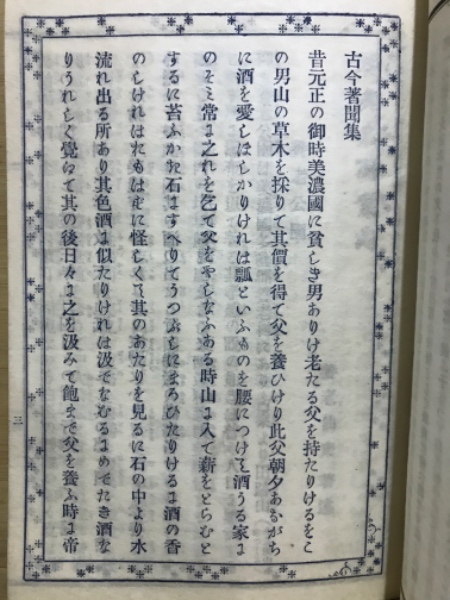 古今著聞集
昔元正の御時美濃國に貧しき男ありけ老たる父を持たりけるをこ
の男山の草木を採りて其價を得て父を養ひけり此父朝夕あながち
に酒を愛しほしかりければ瓢といふものを腰につけて酒うる家に
のぞミ常に之れを乞て父をやしなふある時山に入て薪をとらむと
するに苔ふかき石にすべりてうつぶしにまろひたりけるに酒の香
のしければおもはずに怪しくて其のあたりを見るに石の中より水
流れ出る所あり其色酒に似たりければ汲でなむるにめでたき酒な
りうれしく覺らて其の後日々に之を汲みて飽まで父を養ふ時に帝
三